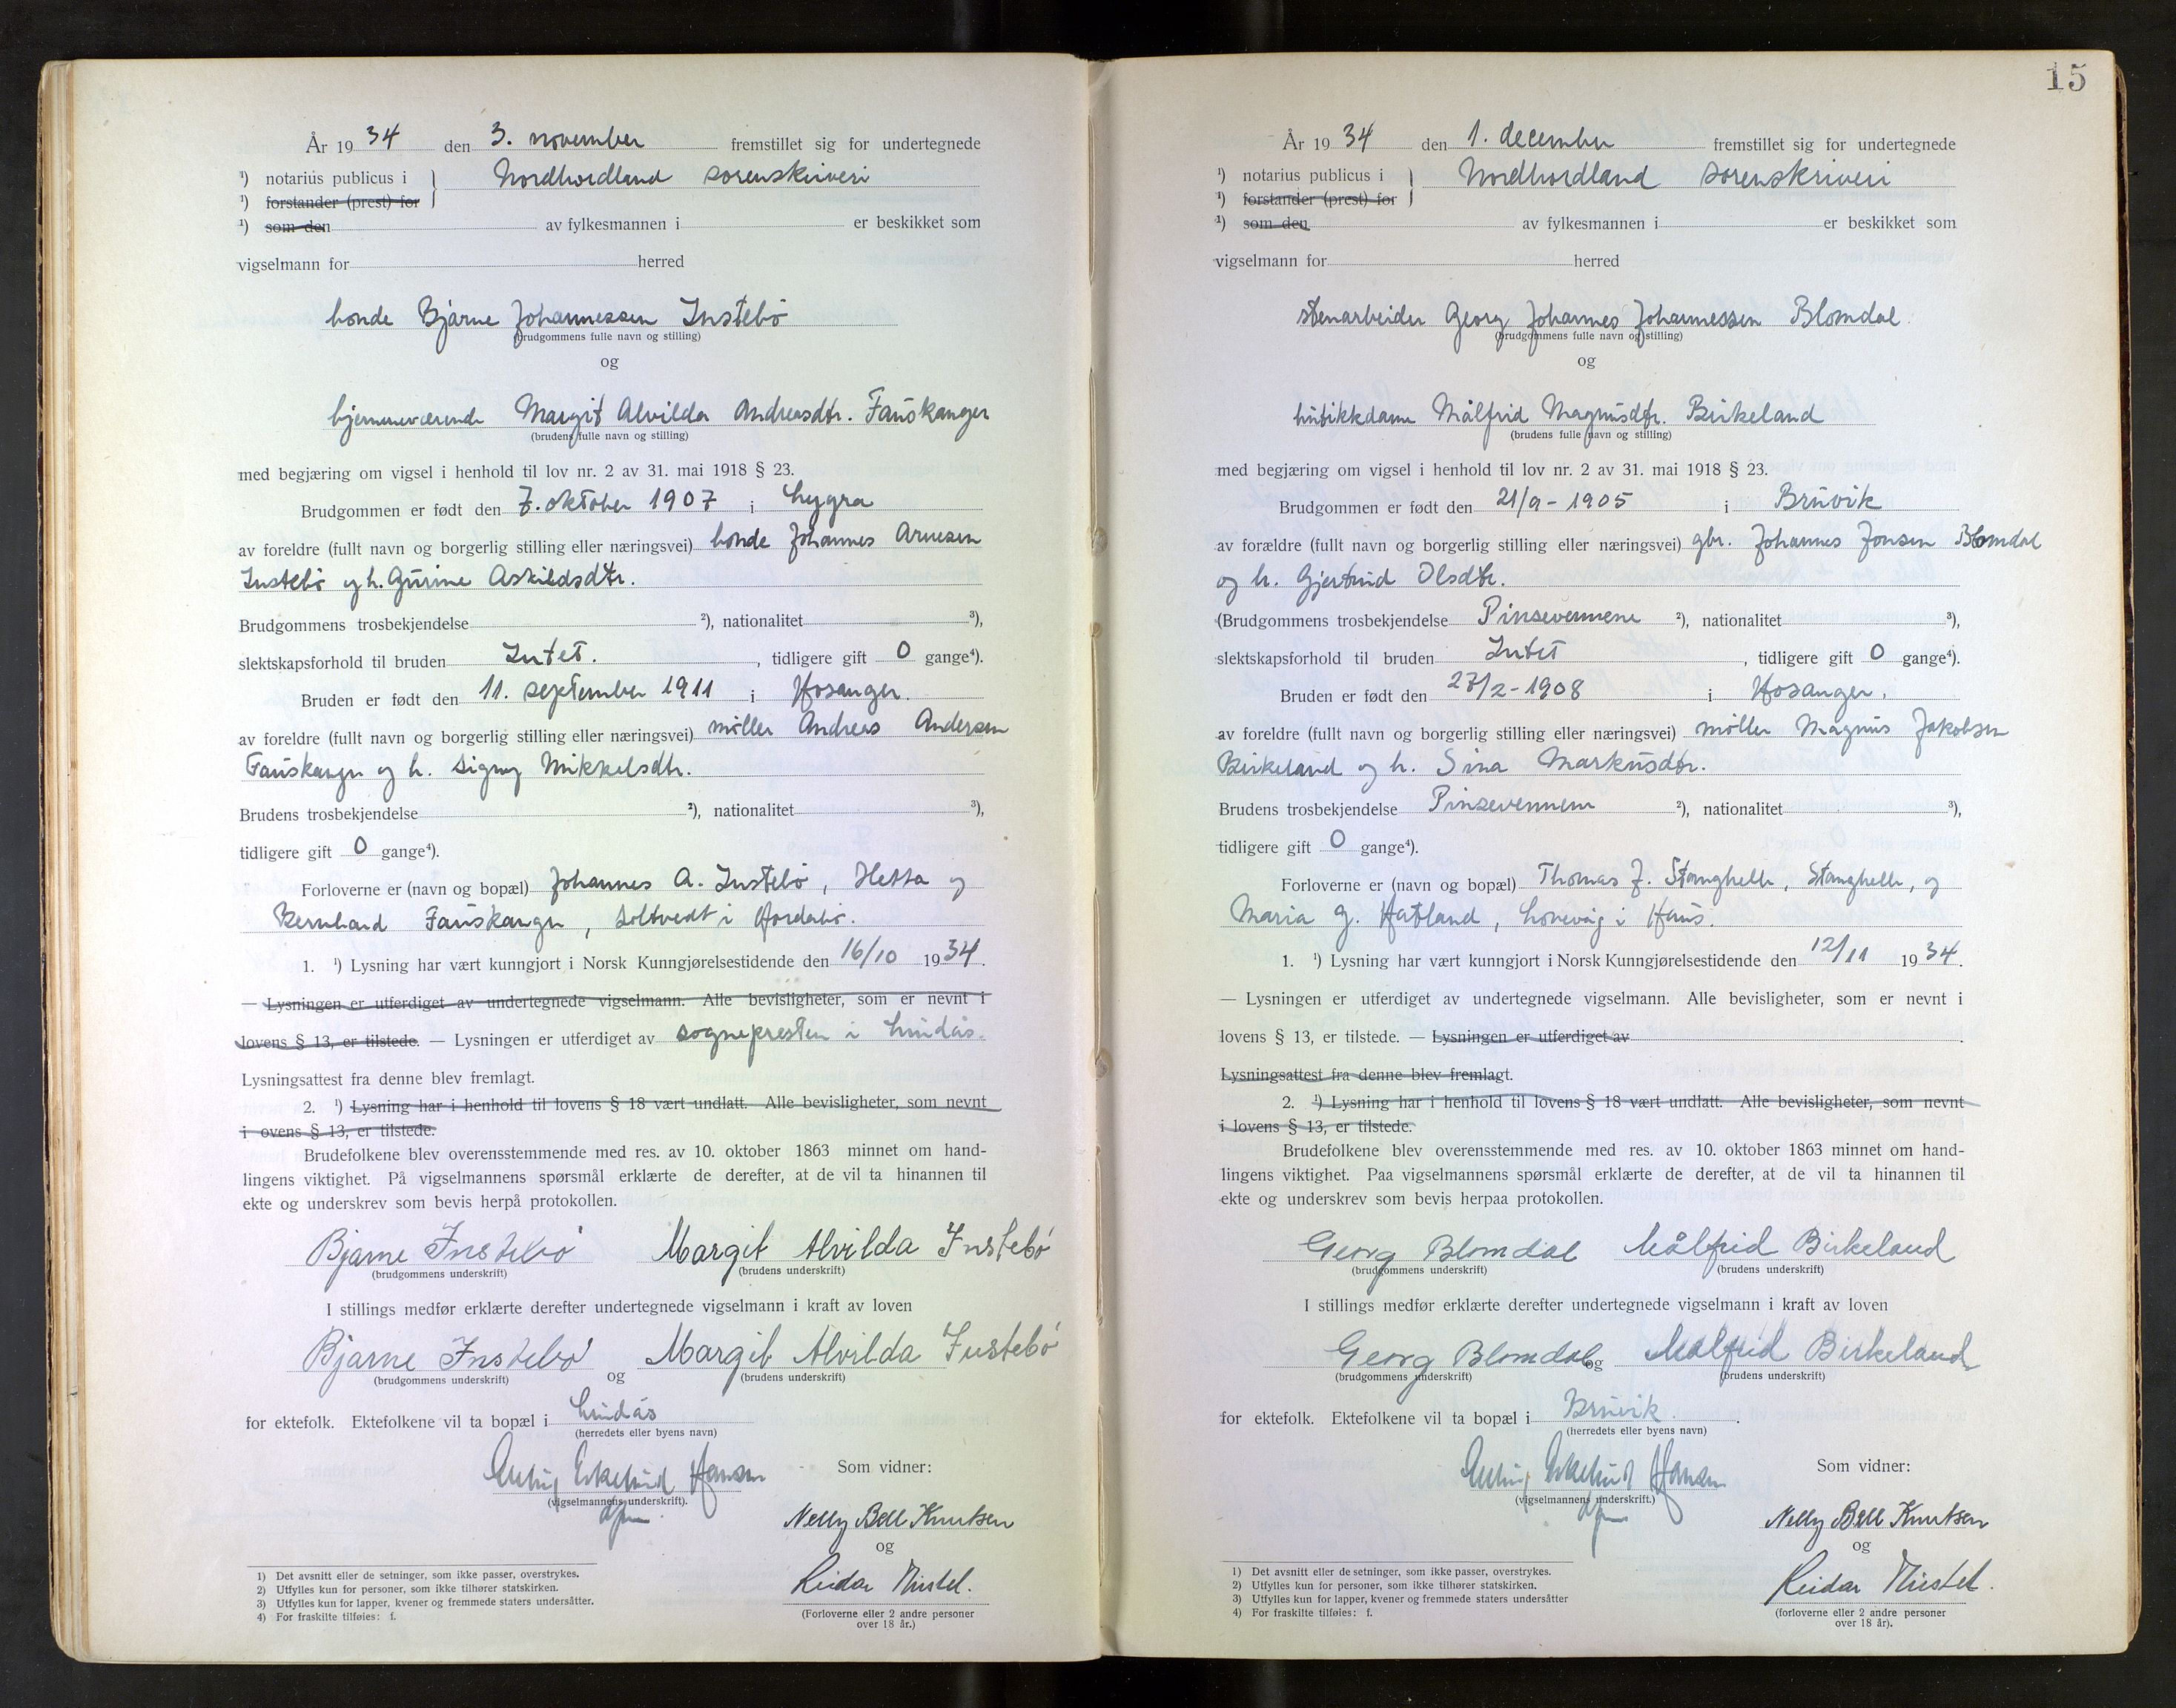 År 1934 den 3. november fremstillet sig for undertegnede
¹) notarius publicus i } Nordhordland sorenskriveri
¹) forstander (prest) for
¹) som den av fylkesmannen i er beskikket som
vigselmann for herred
bonde Bjarne Johannessen Instebö
(brudgommens fulle navn og stilling)
og
hjemmeværende Margit Alvilda Andreasdtr. Fauskanger
(brudens fulle navn og stilling)
med begjæring om vigsel i henhold til lov nr. 2 av 31. mai 1918 § 23.
Brudgommen er født den 7. oktober 1907 i Lygra
av foreldre (fullt navn og borgerlig stilling eller næringsvei) bonde Johannes Arnesen
Instebö og h. Gurine Askildsdtr.
Brudgommens trosbekjendelse ²), nationalitet ³),
slektskapsforhold til bruden Intet. , tidligere gift 0 gange⁴).
Bruden er født den 11. september 1911 i Hosanger.
av foreldre (fullt navn og borgerlig stilling eller næringsvei) møller Andreas Andersen
Fauskanger og h. Signy Mikkelsdtr.
Brudens trosbekjendelse ²), nationalitet ³),
tidligere gift 0 gange⁴).
Forloverne er (navn og bopæl) Johannes A. Instebö, Hetta og
Bernhard Fauskanger, Soltvedt i Hordabö.
1. ¹) Lysning har vært kunngjort i Norsk Kunngjørelsestidende den 16/10 1934.
— Lysningen er utferdiget av undertegnede vigselmann. Alle bevisligheter, som er nevnt i
lovens § 13, er tilstede. — Lysningen er utferdiget av sognepresten i Lindås.
Lysningsattest fra denne blev fremlagt.
2. ¹) Lysning har i henhold til lovens § 18 vært undlatt. Alle bevisligheter, som nevnt
i ovens § 13, er tilstede.
Brudefolkene blev overensstemmende med res. av 10. oktober 1863 minnet om hand-
lingens viktighet. På vigselmannens spørsmål erklærte de derefter, at de vil ta hinannen til
ekte og underskrev som bevis herpå protokollen.
Bjarne Instebö Margit Alvilda Instebö
(brudgommens underskrift) (brudens underskrift)
I stillings medfør erklærte derefter undertegnede vigselmann i kraft av loven
Bjarne Instebö og Margit Alvilda Instebö
(brudgommens underskrift) (brudens underskrift)
for ektefolk. Ektefolkene vil ta bopæl i Lindås
(herredets eller byens navn)
Hansen
(vigselmannens underskrift).
Som vidner:
Nelly Bell Knutsen
og
Reidar Mistel.
(Forloverne eller 2 andre personer
over 18 år.)
1) Det avsnitt eller de setninger, som ikke passer, overstrykes.
2) Utfylles kun for personer, som ikke tilhører statskirken.
3) Utfylles kun for lapper, kvener og fremmede staters undersåtter.
4) For fraskilte tilføies: f.
15
År 1934 den 1. december fremstillet sig for undertegnede
¹) notarius publicus i } Nordhordland sorenskriveri
¹) forstander (prest) for
¹) som den av fylkesmannen i er beskikket som
vigselmann for herred
stenarbeider Georg Johannes Johannessen Blomdal
(brudgommens fulle navn og stilling)
og
butikkdame Målfrid Magnusdtr. Birkeland
(brudens fulle navn og stilling)
med begjæring om vigsel i henhold til lov nr. 2 av 31. mai 1918 § 23.
Brudgommen er født den 21/9-1905 i Bruvik
av forældre (fullt navn og borgerlig stilling eller næringsvei) gbr. Johannes Jonsen Blomdal
og h. Gjertrud Olsdtr.
(Brudgommens trosbekjendelse Pinsevennene ²), nationalitet ³),
slektskapsforhold til bruden Intet , tidligere gift 0 gange⁴).
Bruden er født den 27/2-1908 i Hosanger.
av foreldre (fullt navn og borgerlig stilling eller næringsvei) møller Magnus Jakobsen
Birkeland og h. Sina Markusdtr.
Brudens trosbekjendelse Pinsevennene ²), nationalitet ³),
tidligere gift 0 gange⁴).
Forloverne er (navn og bopæl) Thomas J. Stanghelle, Stanghelle, og
Maria G. Hatland, Lonevåg i Haus.
1. ¹) Lysning har vært kunngjort i Norsk Kunngjørelsestidende den 12/11 1934.
— Lysningen er utferdiget av undertegnede vigselmann. Alle bevisligheter, som er nevnt i
lovens § 13, er tilstede. — Lysningen er utferdiget av .
Lysningsattest fra denne blev fremlagt.
2. ¹) Lysning har i henhold til lovens § 18 vært undlatt. Alle bevisligheter, som nevnt
i lovens § 13, er tilstede.
Brudefolkene blev overensstemmende med res. av 10. oktober 1863 minnet om hand-
lingens viktighet. Paa vigselmannens spørsmål erklærte de derefter, at de vil ta hinannen til
ekte og underskrev som bevis herpaa protokollen.
Georg Blomdal Målfrid Birkeland
(brudgommens underskrift) (brudens underskrift)
I stillings medfør erklærte derefter undertegnede vigselmann i kraft av loven
Georg Blomdal og Målfrid Birkeland
(brudgommens underskrift) (brudens underskrift)
for ektefolk. Ektefolkene vil ta bopæl i Bruvik.
(herredets eller byens navn)
Hansen
(vigselmannens underskrift.)
Som vidner:
Nelly Bell Knutsen
og
Reidar Mistel.
(forloverne eller 2 andre personer
over 18 år).
1) Det avsnitt eller de setninger, som ikke passer, overstrykes.
2) Utfylles kun for personer, som ikke tilhører statskirken.
3) Utfylles kun for lapper, kvener og fremmede staters undersåtter
4) For fraskilte tilføies: f.